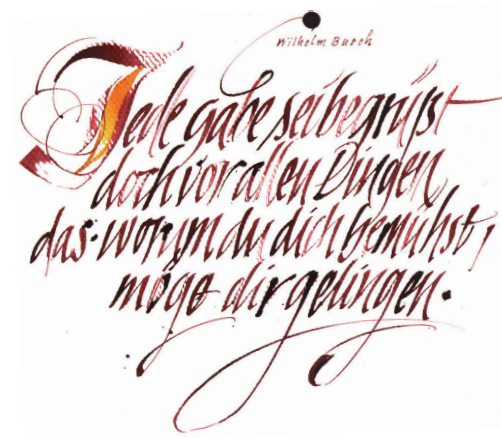 Wilhelm Busch
Jede gabe sei begrüßt
doch vor allen Dingen,
das worum du dich bemühst,
möge dir gelingen.